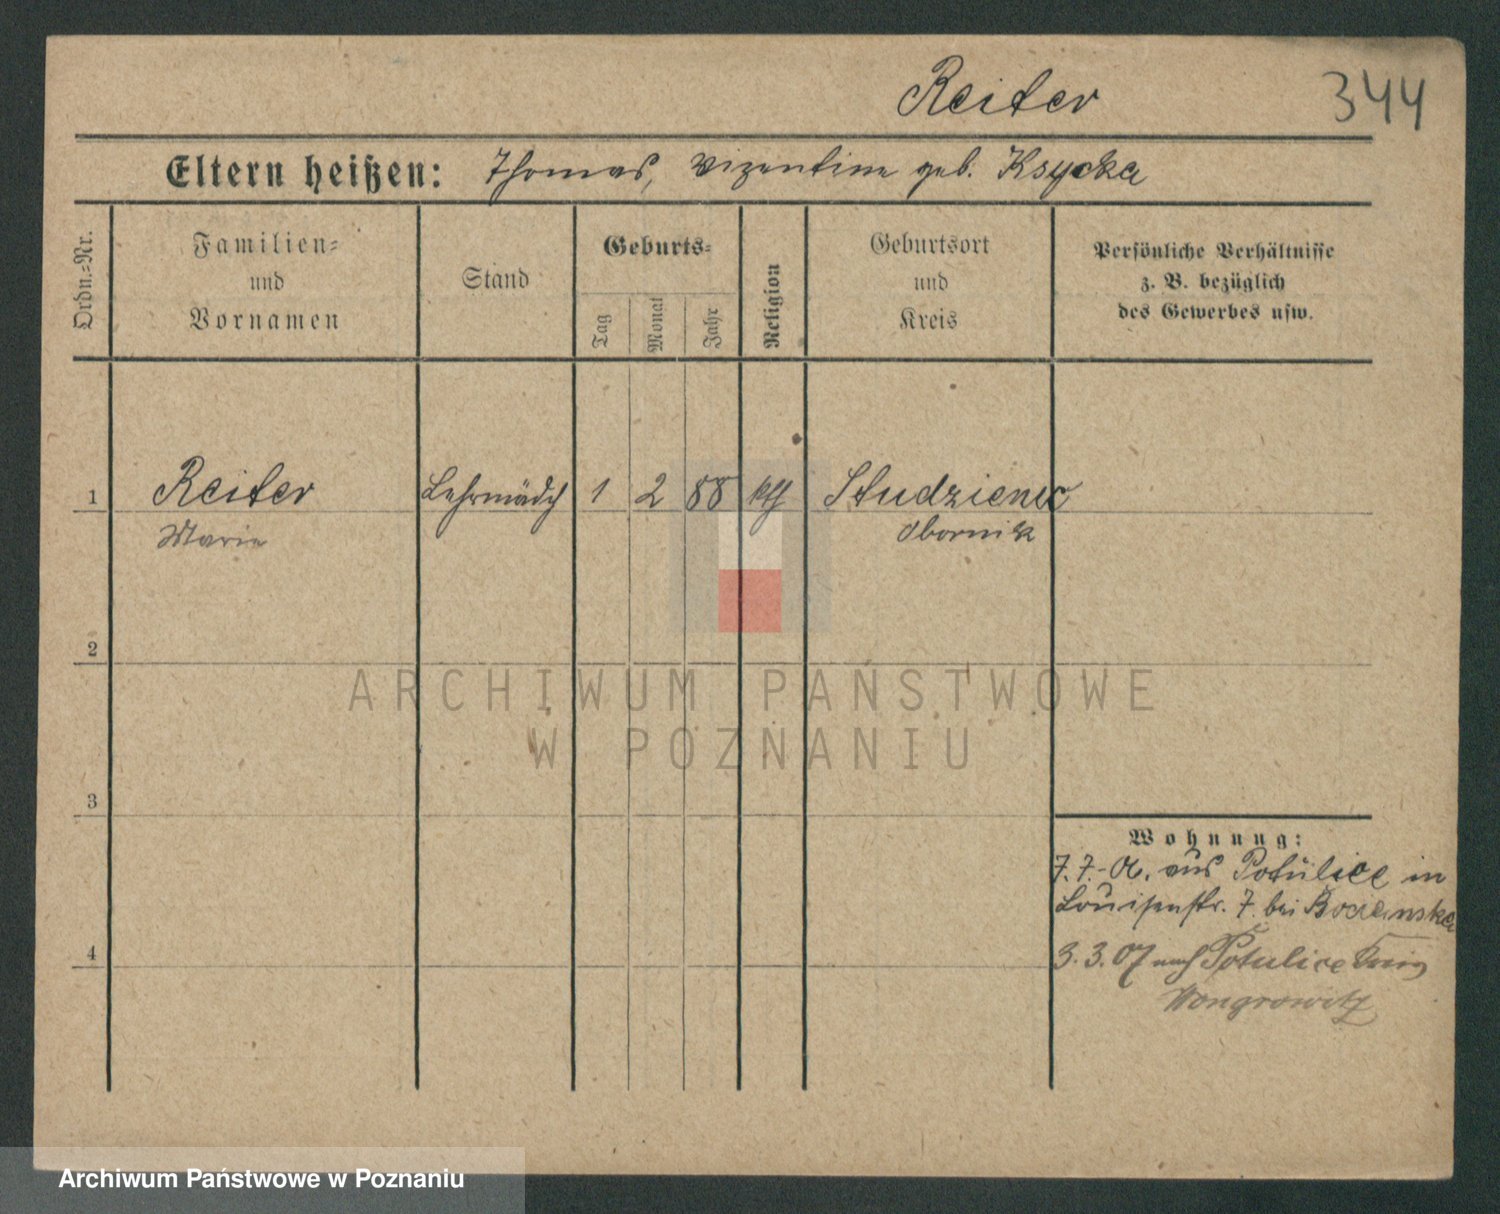 Reiter
344
Eltern heißen: Thomas, Vizentine geb. Ksycka
Ordn.-Nr.
Familien-
und
Vornamen
Stand
Geburts-
Tag
Monat
Jahr
Religion
Geburtsort
und
Kreis
Persönliche Verhältnisse
z. B. bezüglich
des Gewerbes usw.
1 Reiter Lehrmädch 1 2 88 kth Studzieniec
Marie Obornik
2
ARCHIWUM PAŃSTWOWE
W POZNANIU
3
Wohnung:
7. 7. 06. aus Potulice in
Louisenstr. 7. bei
4
3. 3. 07 nach Potulice Kreis
Wongrowitz
Archiwum Państwowe w Poznaniu